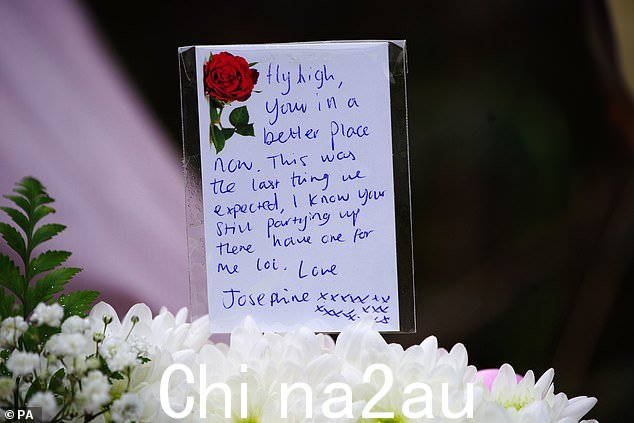 Fly high,
your in a
better place
now. This was
the last thing we
expected, I know your
still partying up
there have one for
me loi. Love
Josephine xxxxx xx
xxxx x. xs
© PA
Chi na2au